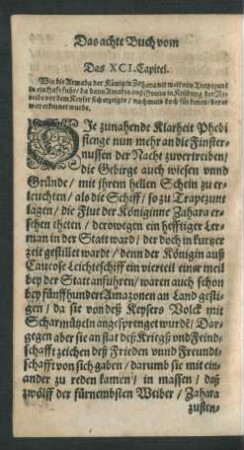 Das achte Buch vom
Das XCI. Capitel.
Wie die Armada der Königin Zahara nit weit von Trapezunt
in ein Hafe fuhr / da dann Amadis auß Grecia in Kleidung der
vor dem Keyser sich erzeigte / nachmals doch für denen / der er
war erkennet wurde.
DIe zunahende Klarheit Phebi
fienge nun mehr an die Finster-
nussen der Nacht zuvertreiben /
die Gebirge auch wiesen vnnd
Gründe / mit jhrem hellen Schein zu er-
leuchten / als die Schiff / so zu Trapezunt
lagen / die Flut der Königinne Zahara er-
sehen theten / derowegen ein hefftiger Ler-
man in der Statt ward / der doch in kurtzer
zeit gestillet warde / denn der Königin auß
Caucose Leichteschiff ein vierteil einer meil
bey der Statt anfuhren / waren auch schon
bey fünffhundert Amazonen an Land gesti-
gen / da sie von deß Keysers Volck mit
Scharmützeln angesprenget wurdē / Dar-
gegen aber sie an stat deß Kriegß vnd Feind-
schafft zeichen deß Frieden vnnd Freundt-
schafft von sich gaben / darumb sie mit ein-
ander zu reden kamen / in massen / daß
zwölff der fürnembsten Weiber / Zahara
zusten-